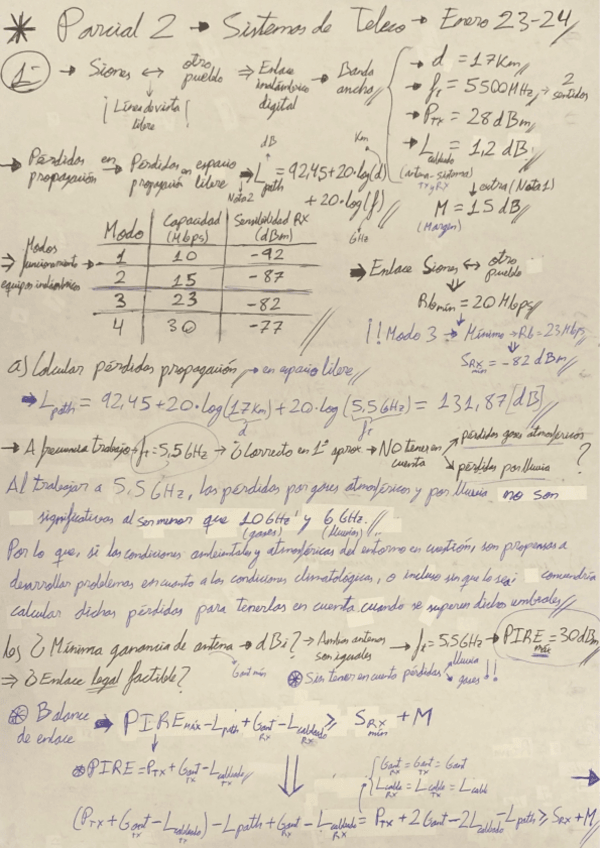 * Parcial 2 → Sistemas de Teleco → Enero 23-24
1- → Siones ↔ otro pueblo ⇒ Enlace inalámbrico digital → Banda ancha
¡Línea de vista libre!
→ d = 17Km
→ fr = 5500MHz → 2 sentidos
→ PTX = 28dBm
→ Lcableado = 1,2 dB
(antena-sistema) TX y RX
↓ extra (Nota1)
M = 15 dB
(Margen)
→ Pérdidas en propagación → Pérdidas en espacio propagación libre ⇒ Lpath = 92,45+20·log(d) + 20·log(f)
dB
Km
Nota2
GHz
⇒ Modos funcionamiento equipos inalámbricos →
Modo | Capacidad (Mbps) | Sensibilidad RX (dBm)
1 | 10 | -92
2 | 15 | -87
3 | 23 | -82
4 | 30 | -77
⇒ Enlace Siones ↔ otro pueblo
Rb mín = 20Mbps
!! Modo 3 → Mínima → Rb = 23Mbps
SRX mín = -82 dBm
a) Calcular pérdidas propagación → en espacio libre
→ Lpath = 92,45+20·log(17Km)+20·log(5,5GHz) = 131,87[dB]
d fr
→ A frecuencia trabajo → fr=5,5GHz → ¿Correcto en 1ª aprox → NO tener en cuenta → pérdidas gases atmosféricos
→ pérdidas por lluvia ?
Al trabajar a 5,5GHz, las pérdidas por gases atmosféricos y por lluvia no son
significativas al ser menor que 10GHz y 6GHz.
(gases) (lluvias)
Por lo que, si las condiciones ambientales y atmosféricas del entorno en cuestión, son propensas a
desarrollar problemas en cuanto a las condiciones climatológicas, o incluso sin que lo sea convendría
calcular dichas pérdidas para tenerlas en cuenta cuando se superen dichos umbrales
b) ¿Mínima ganancia de antena → dBi? → Ambas antenas son iguales → fr=5,5GHz → PIRE máx = 30dBm
Gant mín
⇒ ¿Enlace legal factible?
⊛ Sin tener en cuenta pérdidas lluvia gases !!
⊛ Balance de enlace → PIREmáx - Lpath + Gant RX - Lcableado RX ≥ SRX mín + M
⊛ PIRE = PTX + Gant TX - Lcableado TX
Gant RX = Gant TX = Gant
Lcable RX = Lcable TX = Lcable
(PTX + Gant TX - Lcableado TX) - Lpath + Gant RX - Lcableado RX = PTX + 2Gant - 2Lcableado - Lpath ≥ SRX + M